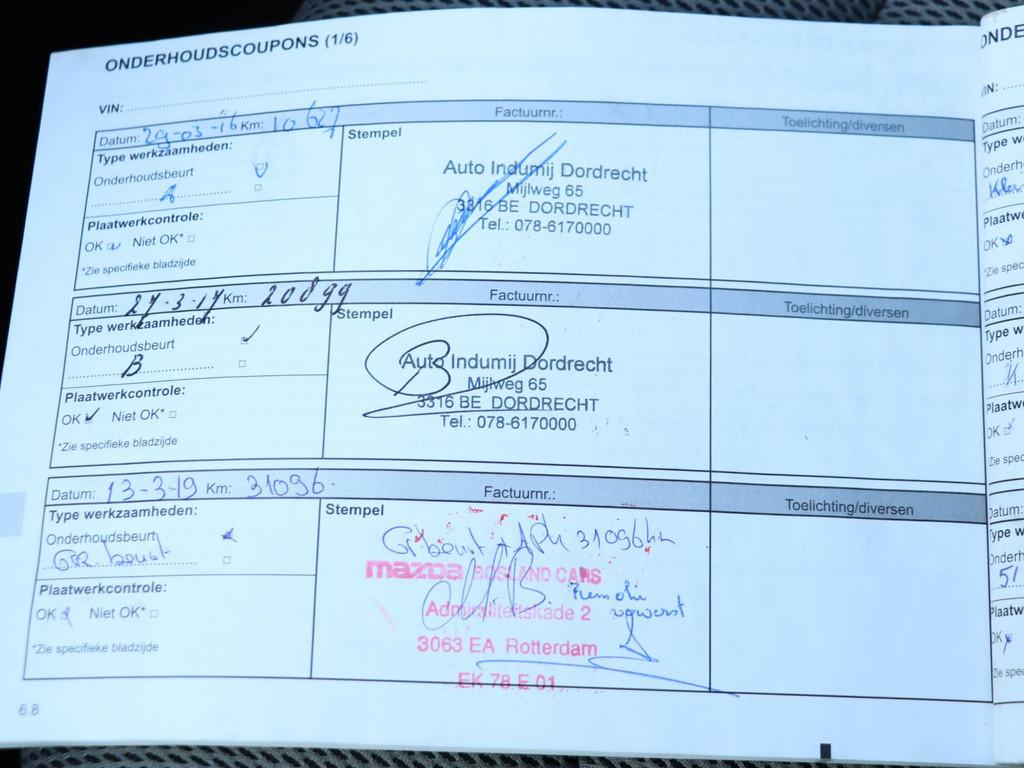 ONDERHOUDSCOUPONS (1/6)
VIN:
Datum: 29-03-16 Km: 10627 Factuurnr.: Toelichting/diversen
Type werkzaamheden:
Onderhoudsbeurt
Plaatwerkcontrole:
OK Niet OK*
*Zie specifieke bladzijde
Stempel
Auto Indumij Dordrecht
Mijlweg 65
3316 BE DORDRECHT
Tel.: 078-6170000
Datum: 27-3-17 Km: 20899 Factuurnr.: Toelichting/diversen
Type werkzaamheden:
Onderhoudsbeurt
B
Plaatwerkcontrole:
OK Niet OK*
*Zie specifieke bladzijde
Stempel
Auto Indumij Dordrecht
Mijlweg 65
3316 BE DORDRECHT
Tel.: 078-6170000
Datum: 13-3-19 Km: 31096 Factuurnr.: Toelichting/diversen
Type werkzaamheden:
Onderhoudsbeurt
Gr beurt
Plaatwerkcontrole:
OK Niet OK*
*Zie specifieke bladzijde
Stempel
Gr beurt + APK 31096km
mazda BOSLAND CARS
Admiraliteitskade 2
3063 EA Rotterdam
EK 78 E 01
6.8
ONDE
VIN:
Datum:
Type w
Onderh
Plaatw
OK
*Zie spec
Datum:
Type w
Onderh
Plaatw
OK
*Zie spec
Datum:
Type w
Onderh
51
Plaatw
OK
*Zie spec